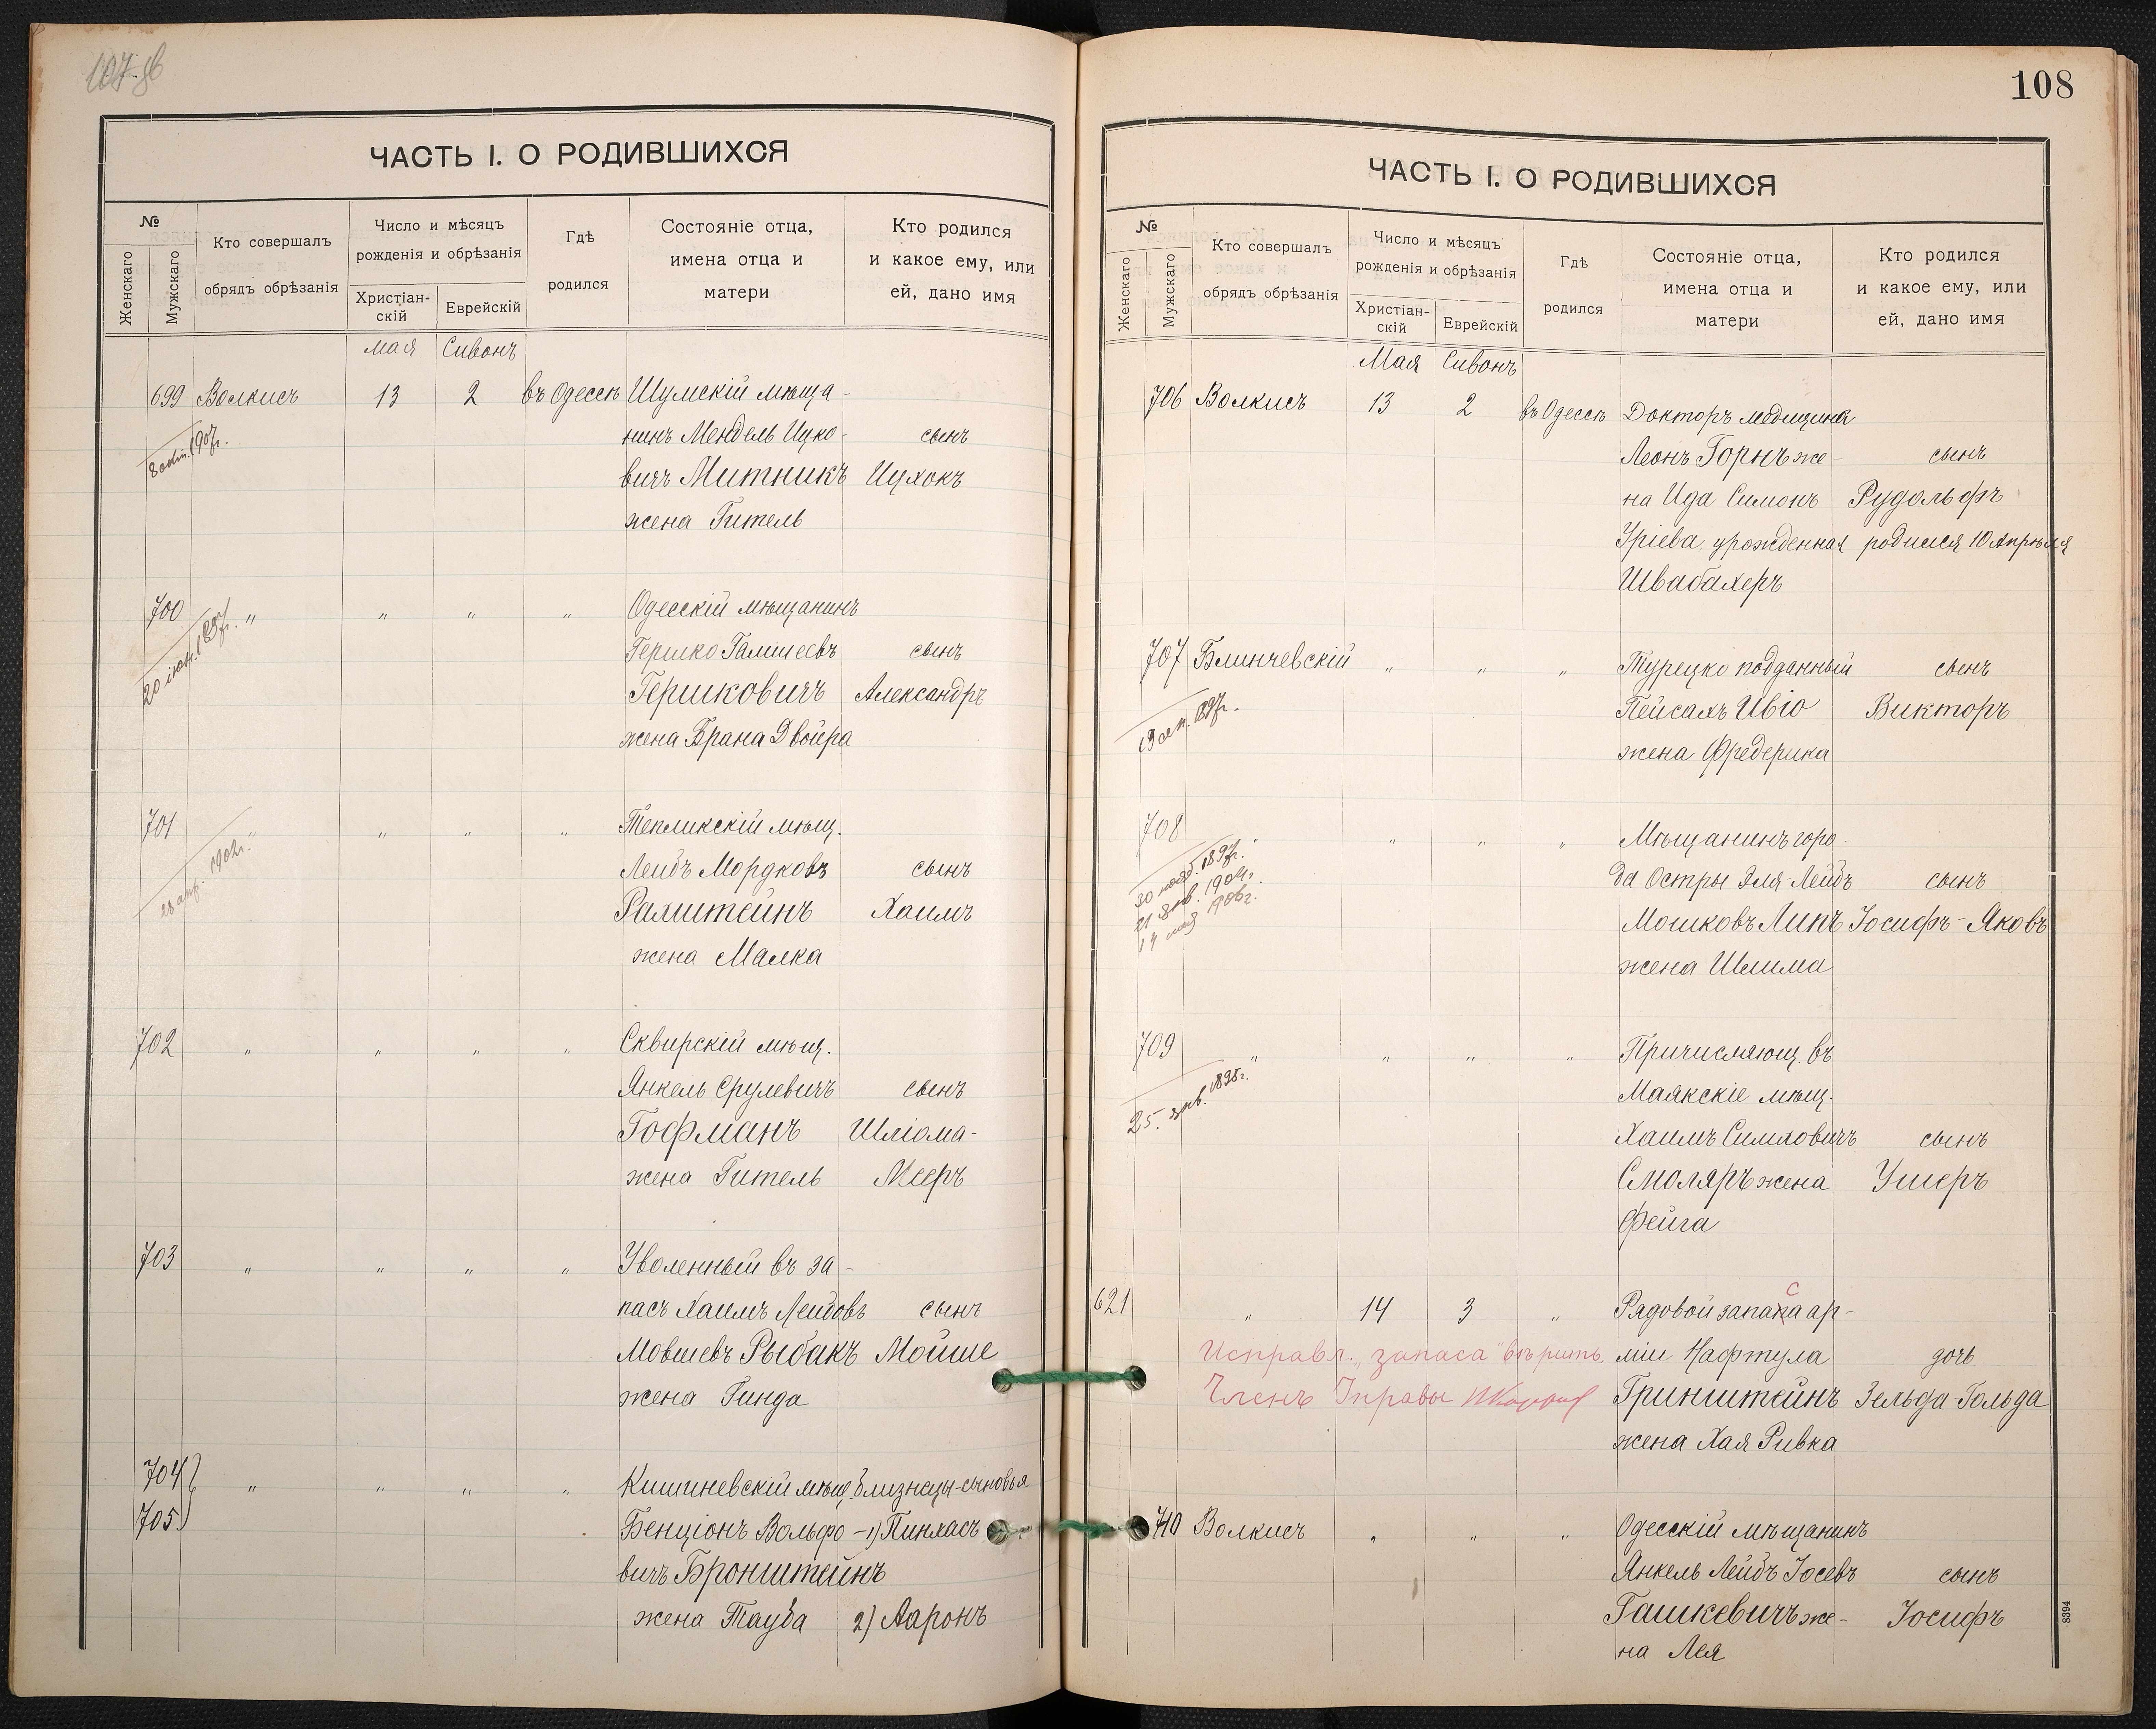 107 об
ЧАСТЬ I. О РОДИВШИХСЯ
№
Женскаго
Мужскаго
Кто совершалъ
обрядъ обрѣзанія
Число и мѣсяцъ
рожденія и обрѣзанія
Христіан-
скій
Еврейскій
Гдѣ
родился
Состояніе отца,
имена отца и
матери
Кто родился
и какое ему, или
ей, дано имя
мая Сивонъ
699 Волкисъ 13 2 въ Одессѣ Шумскій мѣща-
нинъ Мендель Ицко- сынъ
вичъ Митникъ Ицхокъ
жена Гитель
1907г.
700 " " " " Одесскій мѣщанинъ
Гершко сынъ
Гершковичъ Александръ
жена Брана Двойра
701 " " " " Тепликскій мѣщ.
Лейбъ Мордковъ сынъ
Рахштейнъ Хаимъ
жена Малка
1902г.
702 " " " " Сквирскій мѣщ.
Янкель Срулевичъ сынъ
Гофманъ Шліома-
жена Гитель Мееръ
703 " " " " Уволенный въ за-
пасъ Хаимъ Лейбовъ сынъ
Мовшевъ Рыбакъ Мойше
жена Гинда
704 " " " " Кишиневскій мѣщ. близнецы-сыновья
705 Бенціонъ Вольфо- 1) Пинхасъ
вичъ Бронштейнъ
жена Тауба 2) Ааронъ
108
ЧАСТЬ I. О РОДИВШИХСЯ
№
Женскаго
Мужскаго
Кто совершалъ
обрядъ обрѣзанія
Число и мѣсяцъ
рожденія и обрѣзанія
Христіан-
скій
Еврейскій
Гдѣ
родился
Состояніе отца,
имена отца и
матери
Кто родился
и какое ему, или
ей, дано имя
Мая Сивонъ
706 Волкисъ 13 2 въ Одессѣ Докторъ медицины
Леонъ Горнъ же- сынъ
на Ида Симонъ Рудольфъ
Уріева урожденная родился 10 Апрѣля
Швабахеръ
707 Блинчевскій " " " Турецко подданный сынъ
Пейсахъ Ивіо Викторъ
жена Фредерика
708 " " " " Мѣщанинъ горо-
да Остры Эля-Лейбъ сынъ
Мошковъ Липъ Іосифъ-Яковъ
жена Шлима
30 1897г.
21 янв. 1904г.
14 1906г.
709 " " " " Причисляющ. въ
Маякскіе мѣщ.
Хаимъ Симховичъ сынъ
Смоляръ жена Ушеръ
Фейга
25 янв. 1898г.
621 " 14 3 " Рядовой запаса ар-
Исправл. „запаса" вѣрить. міи Нафтула дочь
Членъ Управы Гринштейнъ Зельда-Гольда
жена Хая Ривка
710 Волкисъ " " " Одесскій мѣщанинъ
Янкель Лейбъ Іосевъ сынъ
Гашкевичъ же- Іосифъ
на Лея
8394